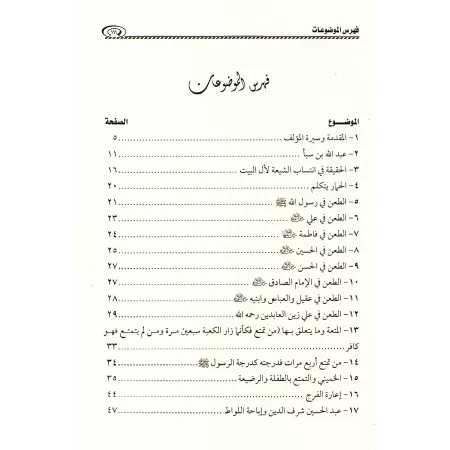 فهرس الموضوعات
فهرس الموضوعات
الموضــــوع الصفحة
١- المقدمة وسيرة المؤلف ........ ٥
٢- عبد الله بن سبأ ........ ١١
٣- الحقيقة في انتساب الشيعة لآل البيت ........ ١٦
٤- الحمار يتكلم ........ ٢٠
٥- الطعن في رسول الله ﷺ ........ ٢١
٦- الطعن في علي ........ ٢٣
٧- الطعن في فاطمة ........ ٢٤
٨- الطعن في الحسين ........ ٢٥
٩- الطعن في الحسن ........ ٢٧
١٠- الطعن في الإمام الصادق ........ ٢٧
١١- الطعن في عقيل والعباس وابنيه ........ ٢٨
١٢- الطعن في علي زين العابدين رحمه الله ........ ٢٩
١٣- المتعة وما يتعلق بها (من تمتع فكأنما زار الكعبة سبعين مرة ومن لم يتمتع فهو
كافر ........ ٣٣
١٤- من تمتع أربع مرات فدرجته كدرجة الرسول ﷺ ........ ٣٤
١٥- الخميني والتمتع بالطفلة والرضيعة ........ ٣٥
١٦- إعارة الفرج ........ ٤٤
١٧- عبد الحسين شرف الدين وإباحة اللواط ........ ٤٧